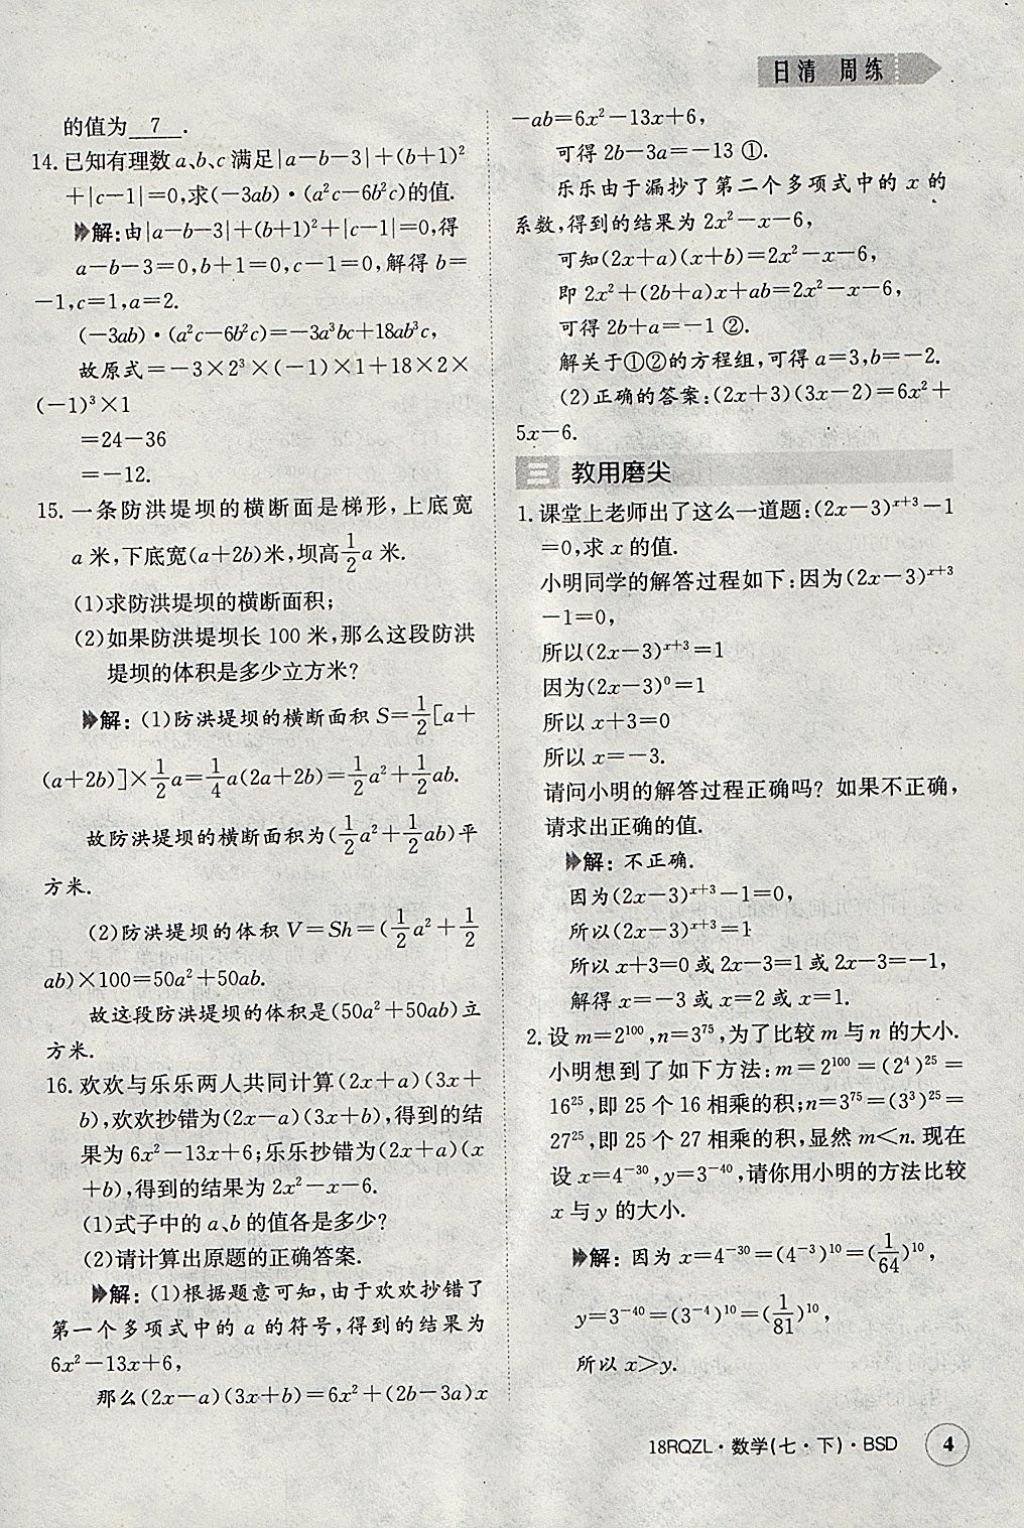 日清 周练
的值为 7 .
14. 已知有理数 a、b、c 满足|a-b-3|+(b+1)²
+|c-1|=0,求(-3ab)·(a²c-6b²c)的值.
解:由|a-b-3|+(b+1)²+|c-1|=0,得
a-b-3=0,b+1=0,c-1=0,解得 b=
-1,c=1,a=2.
(-3ab)·(a²c-6b²c)=-3a³bc+18ab³c,
故原式=-3×2³×(-1)×1+18×2×
(-1)³×1
=24-36
=-12.
15. 一条防洪堤坝的横断面是梯形,上底宽
a 米,下底宽(a+2b)米,坝高\frac{1}{2}a 米.
(1)求防洪堤坝的横断面积;
(2)如果防洪堤坝长 100 米,那么这段防洪
堤坝的体积是多少立方米?
解: (1)防洪堤坝的横断面积 S=\frac{1}{2}[a+
(a+2b)]×\frac{1}{2}a=\frac{1}{4}a(2a+2b)=\frac{1}{2}a²+\frac{1}{2}ab.
故防洪堤坝的横断面积为(\frac{1}{2}a²+\frac{1}{2}ab)平
方米.
(2)防洪堤坝的体积 V=Sh=(\frac{1}{2}a²+\frac{1}{2}
ab)×100=50a²+50ab.
故这段防洪堤坝的体积是(50a²+50ab)立
方米.
16. 欢欢与乐乐两人共同计算(2x+a)(3x+
b),欢欢抄错为(2x-a)(3x+b),得到的结
果为 6x²-13x+6;乐乐抄错为(2x+a)(x
+b),得到的结果为 2x²-x-6.
(1)式子中的 a、b 的值各是多少?
(2)请计算出原题的正确答案.
解: (1)根据题意可知,由于欢欢抄错了
第一个多项式中的 a 的符号,得到的结果为
6x²-13x+6,
那么(2x-a)(3x+b)=6x²+(2b-3a)x
-ab=6x²-13x+6,
可得 2b-3a=-13 ①.
乐乐由于漏抄了第二个多项式中的 x 的
系数,得到的结果为 2x²-x-6,
可知(2x+a)(x+b)=2x²-x-6,
即 2x²+(2b+a)x+ab=2x²-x-6,
可得 2b+a=-1 ②.
解关于①②的方程组,可得 a=3,b=-2.
(2)正确的答案:(2x+3)(3x-2)=6x²+
5x-6.
三 教用磨尖
1. 课堂上老师出了这么一道题:(2x-3)ˣ⁺³-1
=0,求 x 的值.
小明同学的解答过程如下:因为(2x-3)ˣ⁺³
-1=0,
所以(2x-3)ˣ⁺³=1
因为(2x-3)⁰=1
所以 x+3=0
所以 x=-3.
请问小明的解答过程正确吗? 如果不正确,
请求出正确的值.
解: 不正确.
因为(2x-3)ˣ⁺³-1=0,
所以(2x-3)ˣ⁺³=1
所以 x+3=0 或 2x-3=1 或 2x-3=-1,
解得 x=-3 或 x=2 或 x=1.
2. 设 m=2¹⁰⁰,n=3⁷⁵,为了比较 m 与 n 的大小.
小明想到了如下方法:m=2¹⁰⁰=(2⁴)²⁵=
16²⁵,即 25 个 16 相乘的积;n=3⁷⁵=(3³)²⁵=
27²⁵,即 25 个 27 相乘的积,显然 m<n. 现在
设 x=4⁻³⁰,y=3⁻⁴⁰,请你用小明的方法比较
x 与 y 的大小.
解: 因为 x=4⁻³⁰=(4⁻³)¹⁰=(\frac{1}{64})¹⁰,
y=3⁻⁴⁰=(3⁻⁴)¹⁰=(\frac{1}{81})¹⁰,
所以 x>y.
18RQZL·数学(七·下)·BSD 4